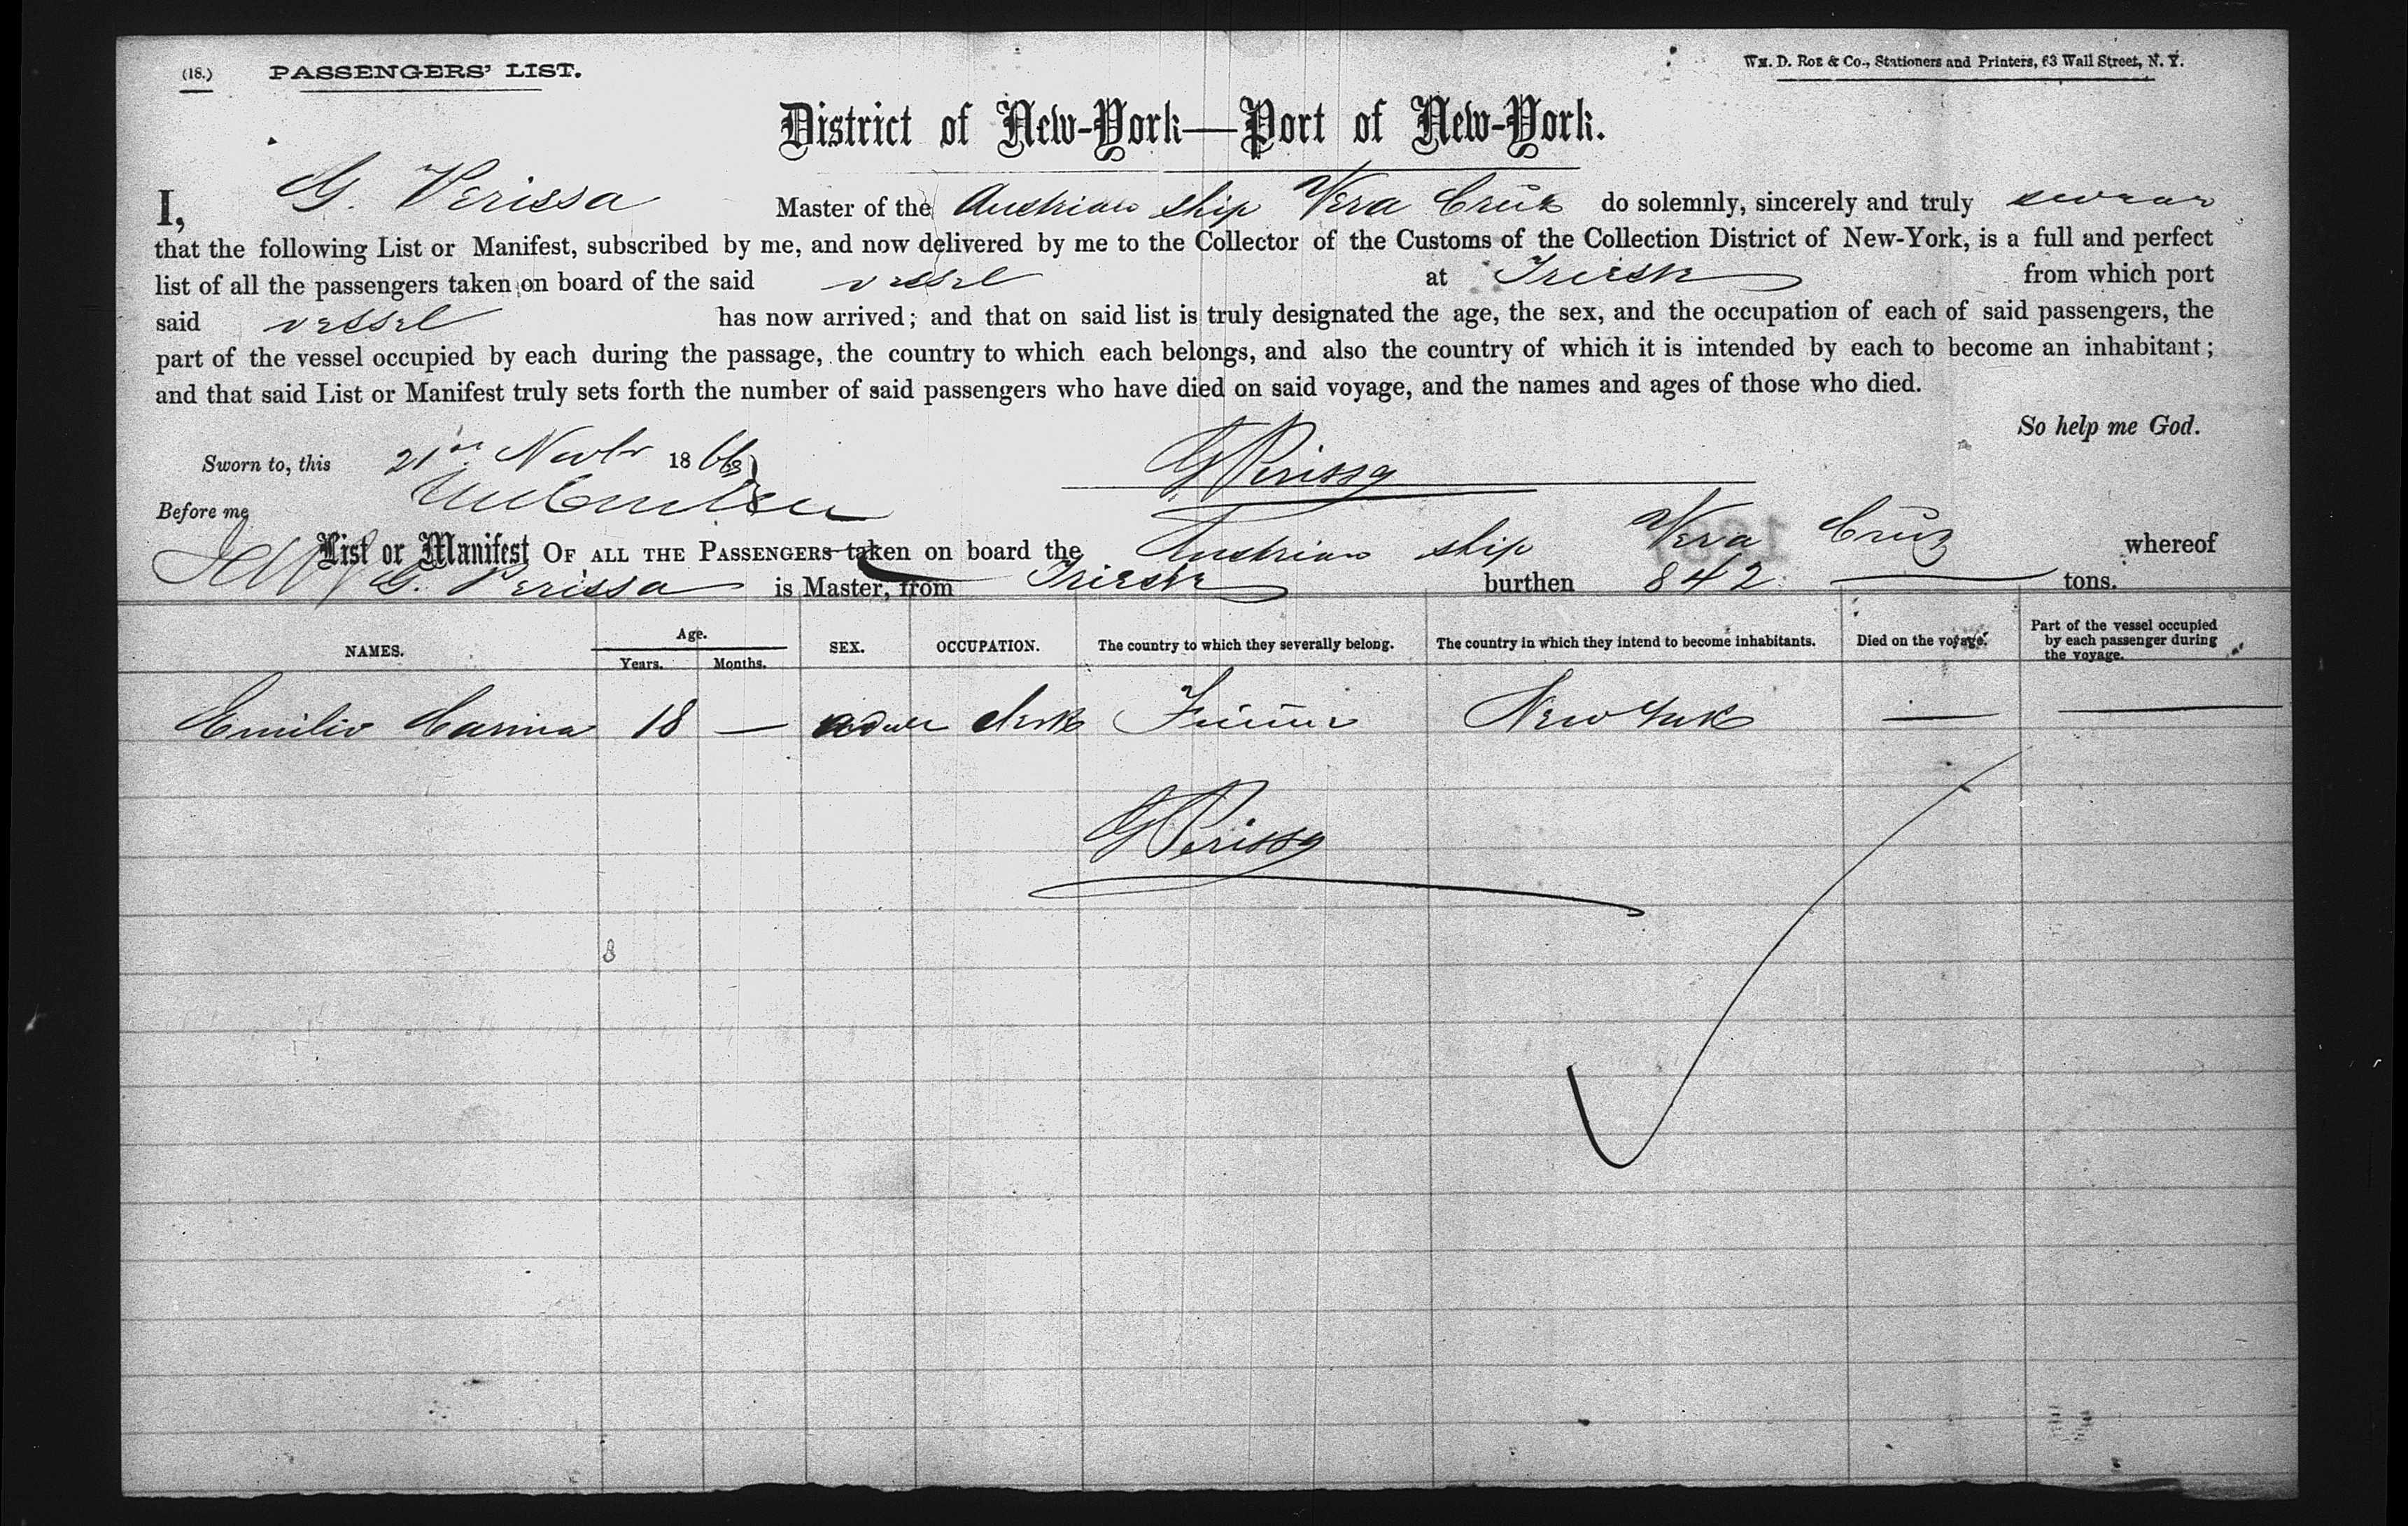 (18.) PASSENGERS' LIST. Wm. D. Roe & Co., Stationers and Printers, 63 Wall Street, N. Y.
District of New-York—Port of New-York.
I, G. Perissa Master of the Austrian ship Vera Cruz do solemnly, sincerely and truly swear
that the following List or Manifest, subscribed by me, and now delivered by me to the Collector of the Customs of the Collection District of New-York, is a full and perfect
list of all the passengers taken on board of the said vessel at Trieste from which port
said vessel has now arrived; and that on said list is truly designated the age, the sex, and the occupation of each of said passengers, the
part of the vessel occupied by each during the passage, the country to which each belongs, and also the country of which it is intended by each to become an inhabitant;
and that said List or Manifest truly sets forth the number of said passengers who have died on said voyage, and the names and ages of those who died.
So help me God.
Sworn to, this 21st Novbr 1866 G Perissa
Before me
List or Manifest OF ALL THE PASSENGERS taken on board the Austrian ship Vera Cruz whereof
G. Perissa is Master, from Trieste burthen 842 tons.
NAMES. Age. Years. Months. SEX. OCCUPATION. The country to which they severally belong. The country in which they intend to become inhabitants. Died on the voyage. Part of the vessel occupied by each passenger during the voyage.
Emilio 18 — clerk Fiume New York — —
G Perissa
8